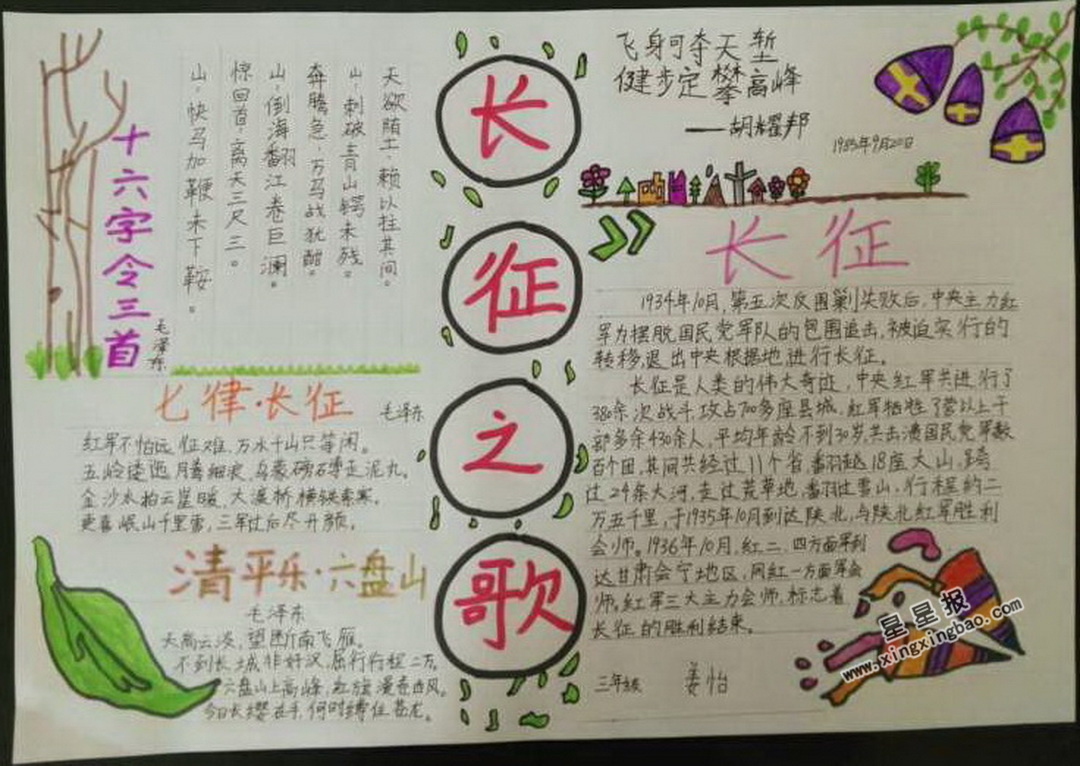 长
征
之
歌
十六字令三首
毛泽东
山，快马加鞭未下鞍。
惊回首，离天三尺三。
山，倒海翻江卷巨澜。
奔腾急，万马战犹酣。
山，刺破青山锷未残。
天欲堕，赖以拄其间。
七律·长征
毛泽东
红军不怕远征难，万水千山只等闲。
五岭逶迤腾细浪，乌蒙磅礴走泥丸。
金沙水拍云崖暖，大渡桥横铁索寒。
更喜岷山千里雪，三军过后尽开颜。
清平乐·六盘山
毛泽东
天高云淡，望断南飞雁。
不到长城非好汉，屈行行程二万。
六盘山上高峰，红旗漫卷西风。
今日长缨在手，何时缚住苍龙。
飞身可夺天堑
健步定攀高峰
——胡耀邦
长征
1934年10月，第五次反围剿失败后，中央主力红
军为摆脱国民党军队的包围追击，被迫实行的
转移，退出中央根据地进行长征。
长征是人类的伟大奇迹，中央红军共进行了
380余次战斗，攻占700多座县城，红军牺牲了营以上干
部多余430余人，平均年龄不到30岁，共击溃国民党军数
百个团，其间共经过11个省，翻越18座大山，跨
过24条大河，走过荒草地，翻过雪山，行程约二
万五千里，于1935年10月到达陕北，与陕北红军胜利
会师。1936年10月，红二、四方面军到
达甘肃会宁地区，同红一方面军会
师。红军三大主力会师，标志着
长征的胜利结束。
三年级 姜怡
星星报
www.xingxingbao.com